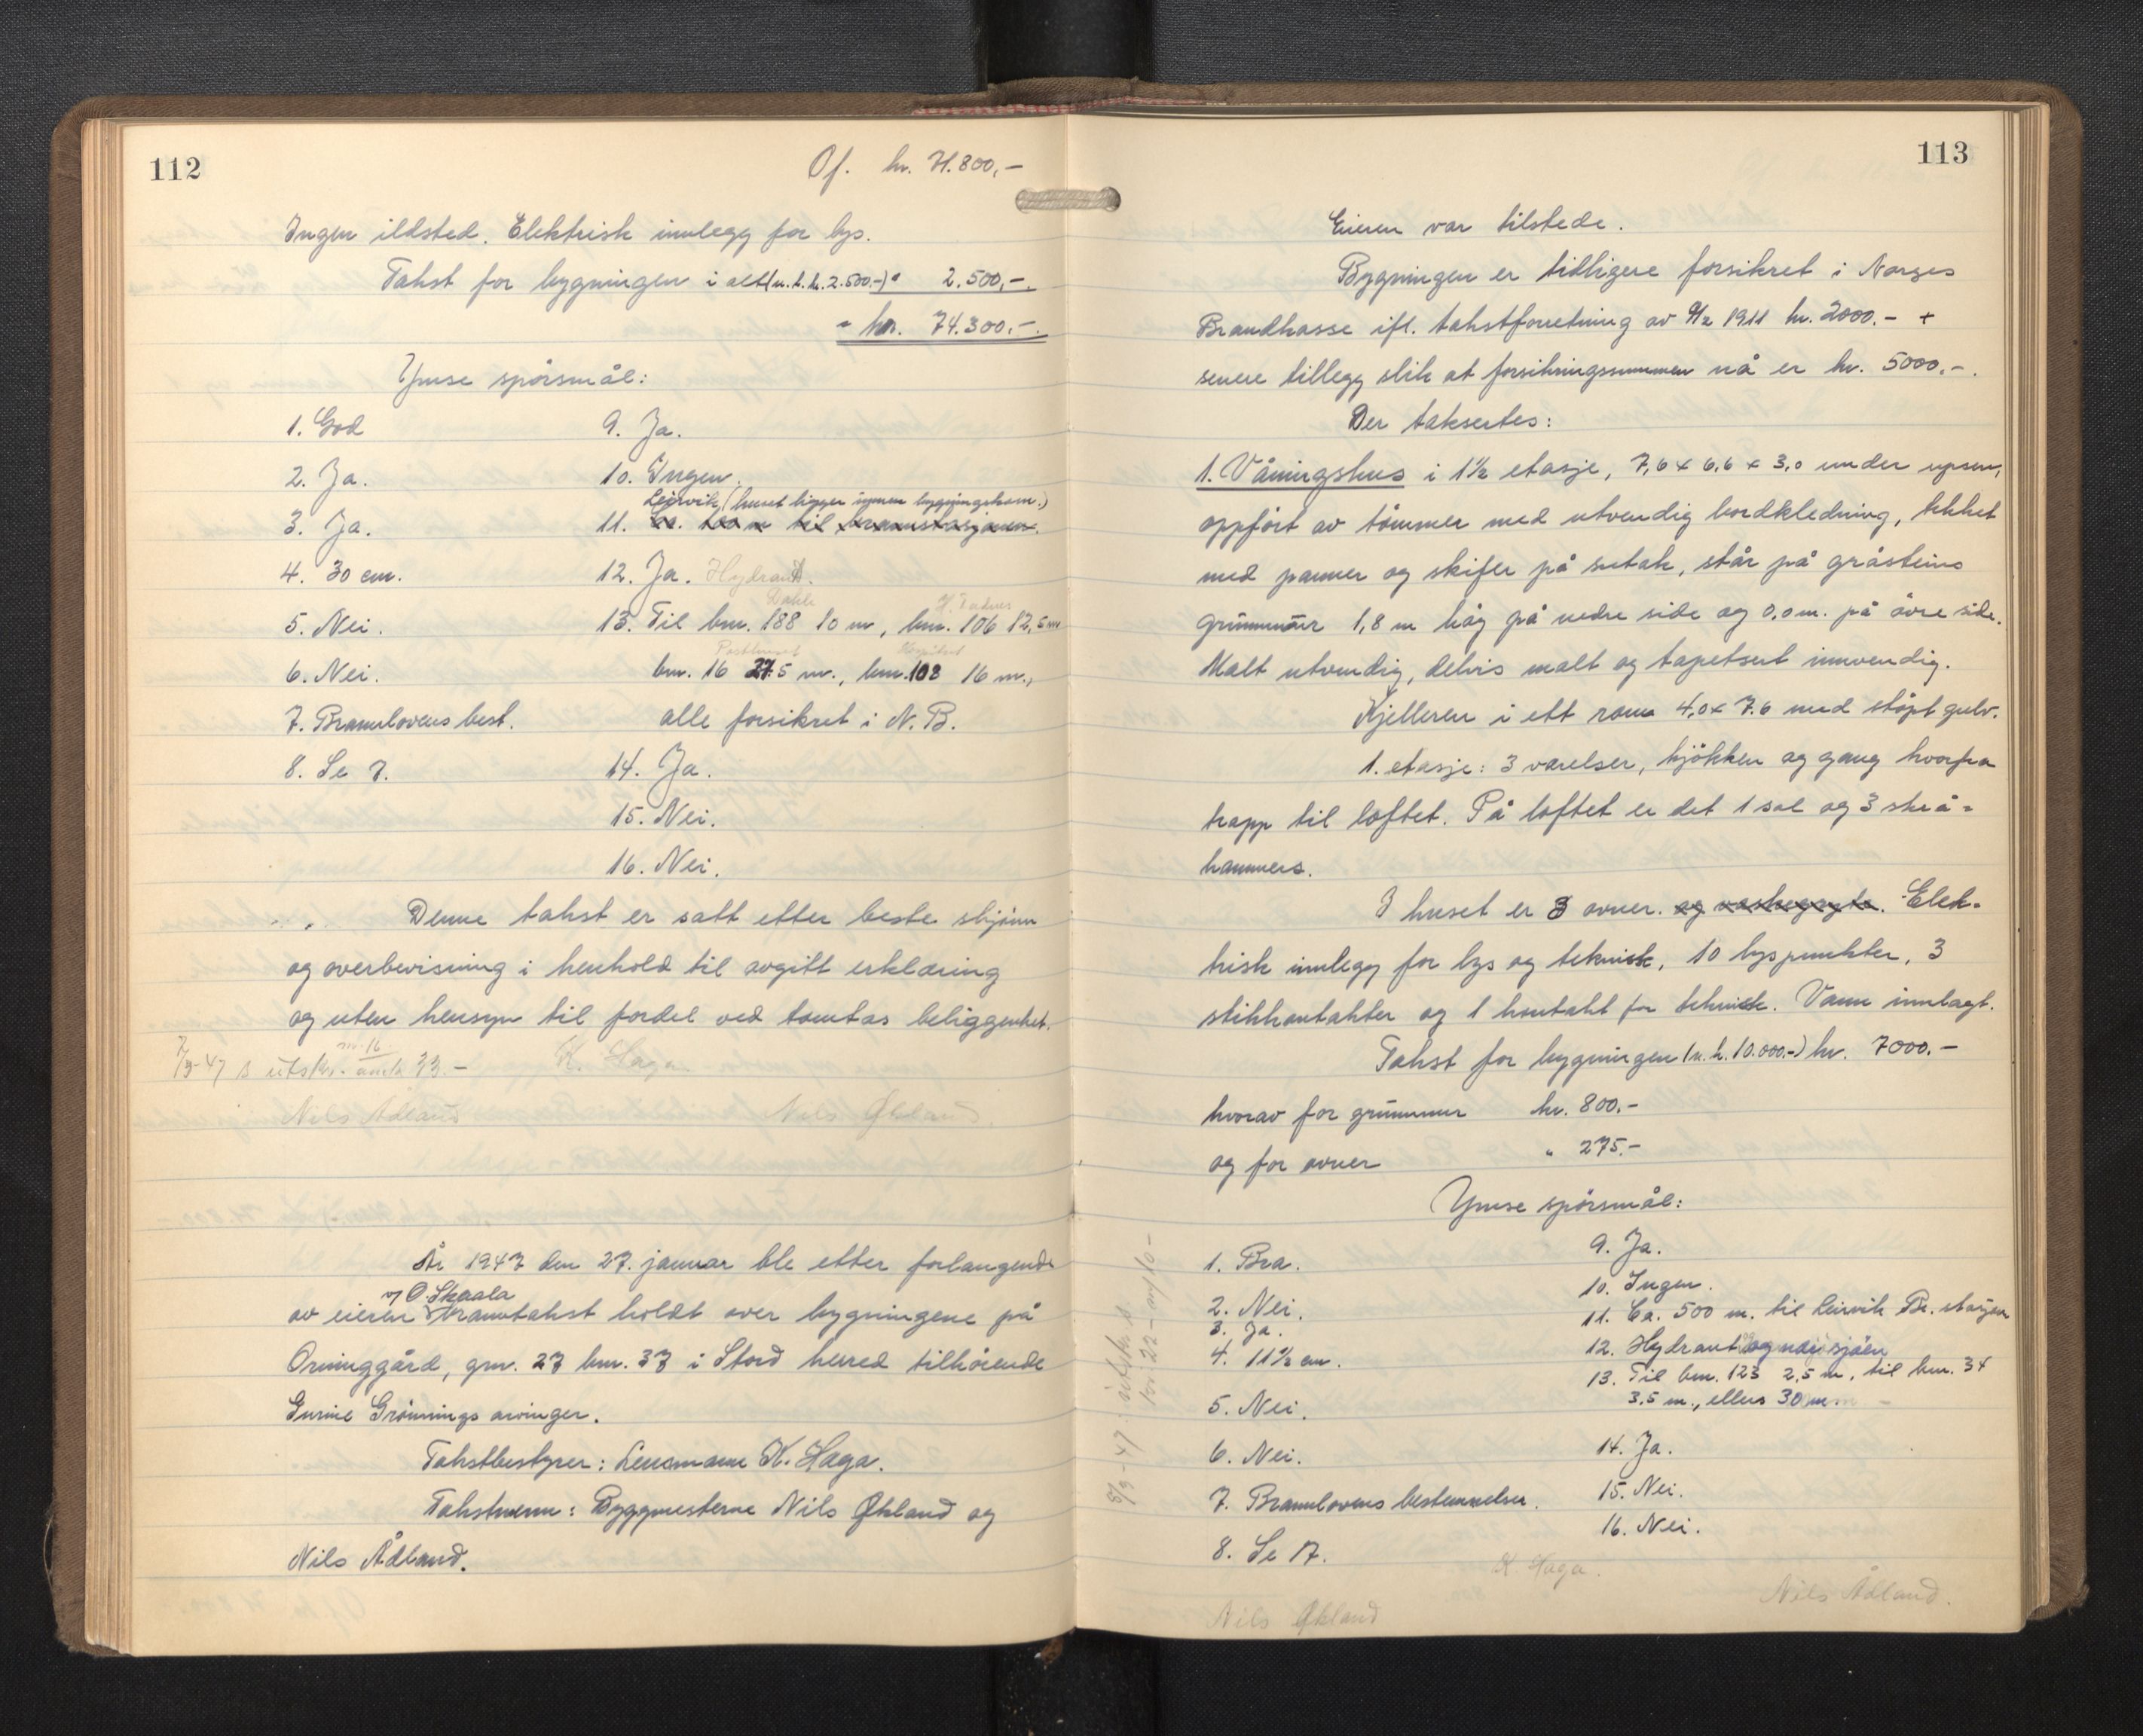 112
Of. kr. 71.800,-
Ingen ildsted. Elektrisk innlegg for lys.
Takst for bygningen i alt (n.t.k. 2.500.-) " 2.500,-.
= kr. 74.300.-.
Ymse spörsmål:
1. God
2. Ja.
3. Ja.
4. 30 cm.
5. Nei.
6. Nei.
7. Brannlovens best.
8. Se 7.
9. Ja.
10. Ingen.
Leirvik (huset ligger innen bygningskom.)
11. Ca. 100 m til brannstasjonen.
12. Ja. Hydrant.
Dahle
13. Til bnr. 188 10 m, bnr. 106 12,5 m
Posthuset
bnr. 16 27.5 m., bnr. 108 16 m.,
alle forsikret i N.B.
14. Ja.
15. Nei.
16. Nei.
Denne takst er satt etter beste skjönn
og overbevisning i henhold til avgitt erklæring
og uten hensyn til fordel ved tomtas beliggenhet.
7/3-47 s utskr. 33.-
K. Haga.
Nils Ådland
Nils Økland.
År 1947 den 27. januar ble etter forlangende
v/ O. Skaala
av eieren branntakst holdt over bygningene på
Orninggård, gnr. 27 bnr. 37 i Stord herred tilhörende
Gurine Grönnings arvinger.
Takstbestyrer: Lensmann K. Haga.
Takstmenn: Byggmesterne Nils Økland og
Nils Ådland.
113
Eieren var tilstede.
Bygningen er tidligere forsikret i Norges
Brandkasse ifl. takstforretning av 9/2 1911 kr. 2000.- +
senere tillegg slik at forsikringssummen nå er kr. 5000.-.
Der taksertes:
1. Våningshus i 1½ etasje, 7,6 x 6,6 x 3,0 under upsen,
oppfört av tömmer med utvendig bordkledning, tekket
med panner og skifer på sutak, står på gråsteins
grunnmur 1,8 m høg på nedre side og 0,0 m. på övre side.
Malt utvendig, delvis malt og tapetsert innvendig.
Kjelleren i ett rom 4,0 x 7.6 med stöpt gulv.
1. etasje: 3 værelser, kjökken og gang hvorfra
trapp til loftet. På loftet er det 1 sal og 3 skrå-
kammers.
I huset er 3 ovner. og vaskegryte. Elek-
trisk innlegg for lys og teknisk, 10 lyspunkter, 3
stikkontakter og 1 kontakt for teknisk. Vann innlagt.
Takst for bygningen (n.k. 10.000.-) kr. 7000.-
hvorav for grunnmur kr. 800.-
og for ovner " 275.-
Ymse spörsmål:
1. Bra.
2. Nei.
3. Ja.
4. 11½ cm.
5. Nei.
6. Nei.
7. Brannlovens bestemmelser.
8. Se 7.
9. Ja.
10. Ingen.
11. Ca. 500 m. til Leirvik Br. stasjon
12. Hydrant og nær sjöen
13. Til bnr. 123 2,5 m, til bnr. 34
3,5 m., ellers 30 m
14. Ja.
15. Nei.
16. Nei.
K Haga.
Nils Økland
Nils Ådland.